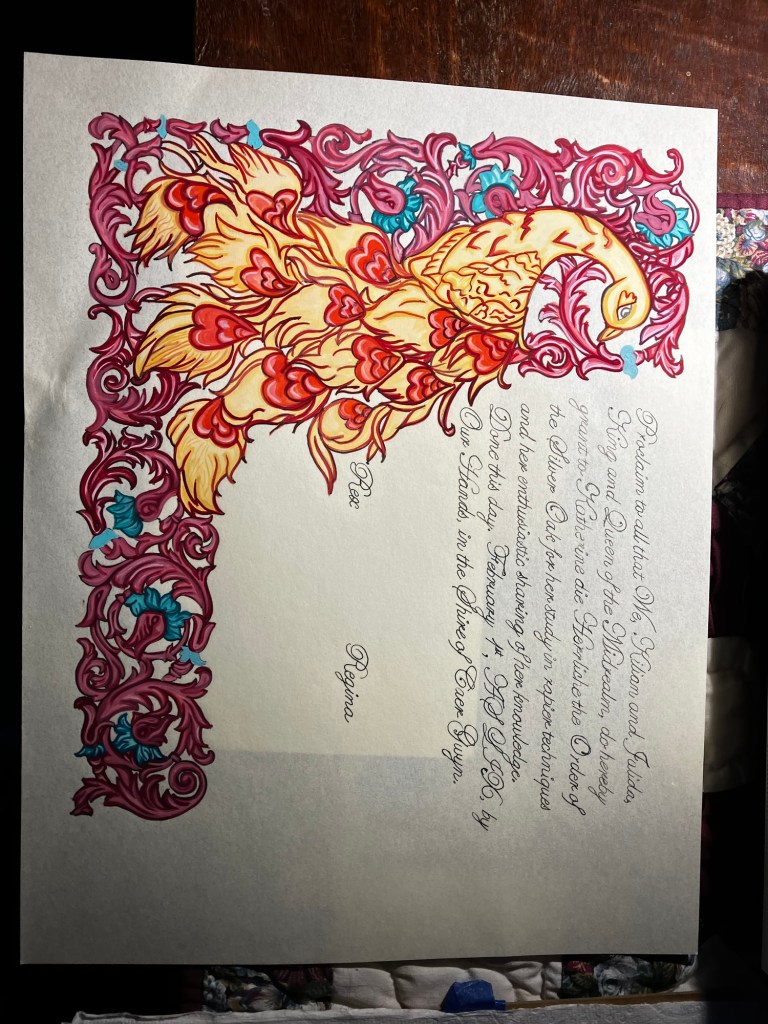 Proclaim to all that We, Kiliam and Julida,
King and Queen of the Midrealm, do hereby
grant to Katherine die Herrliche the Order of
the Silver Oak for her study in rapier techniques
and her enthusiastic sharing of her knowledge.
Done this day, February 1st, AS LIX, by
Our Hands, in the Shire of Gwyn.
Rex Regina